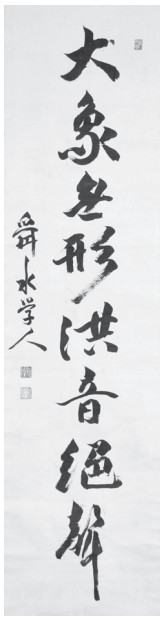 大象無形洪音絶聲
舜水学人